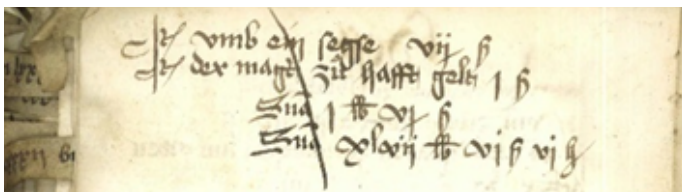 It umb ein segse vij ß
It der magt zit hafft gelt i ß
Sũa i lb vj ß
Sũa xlvij lb vi ß vi h